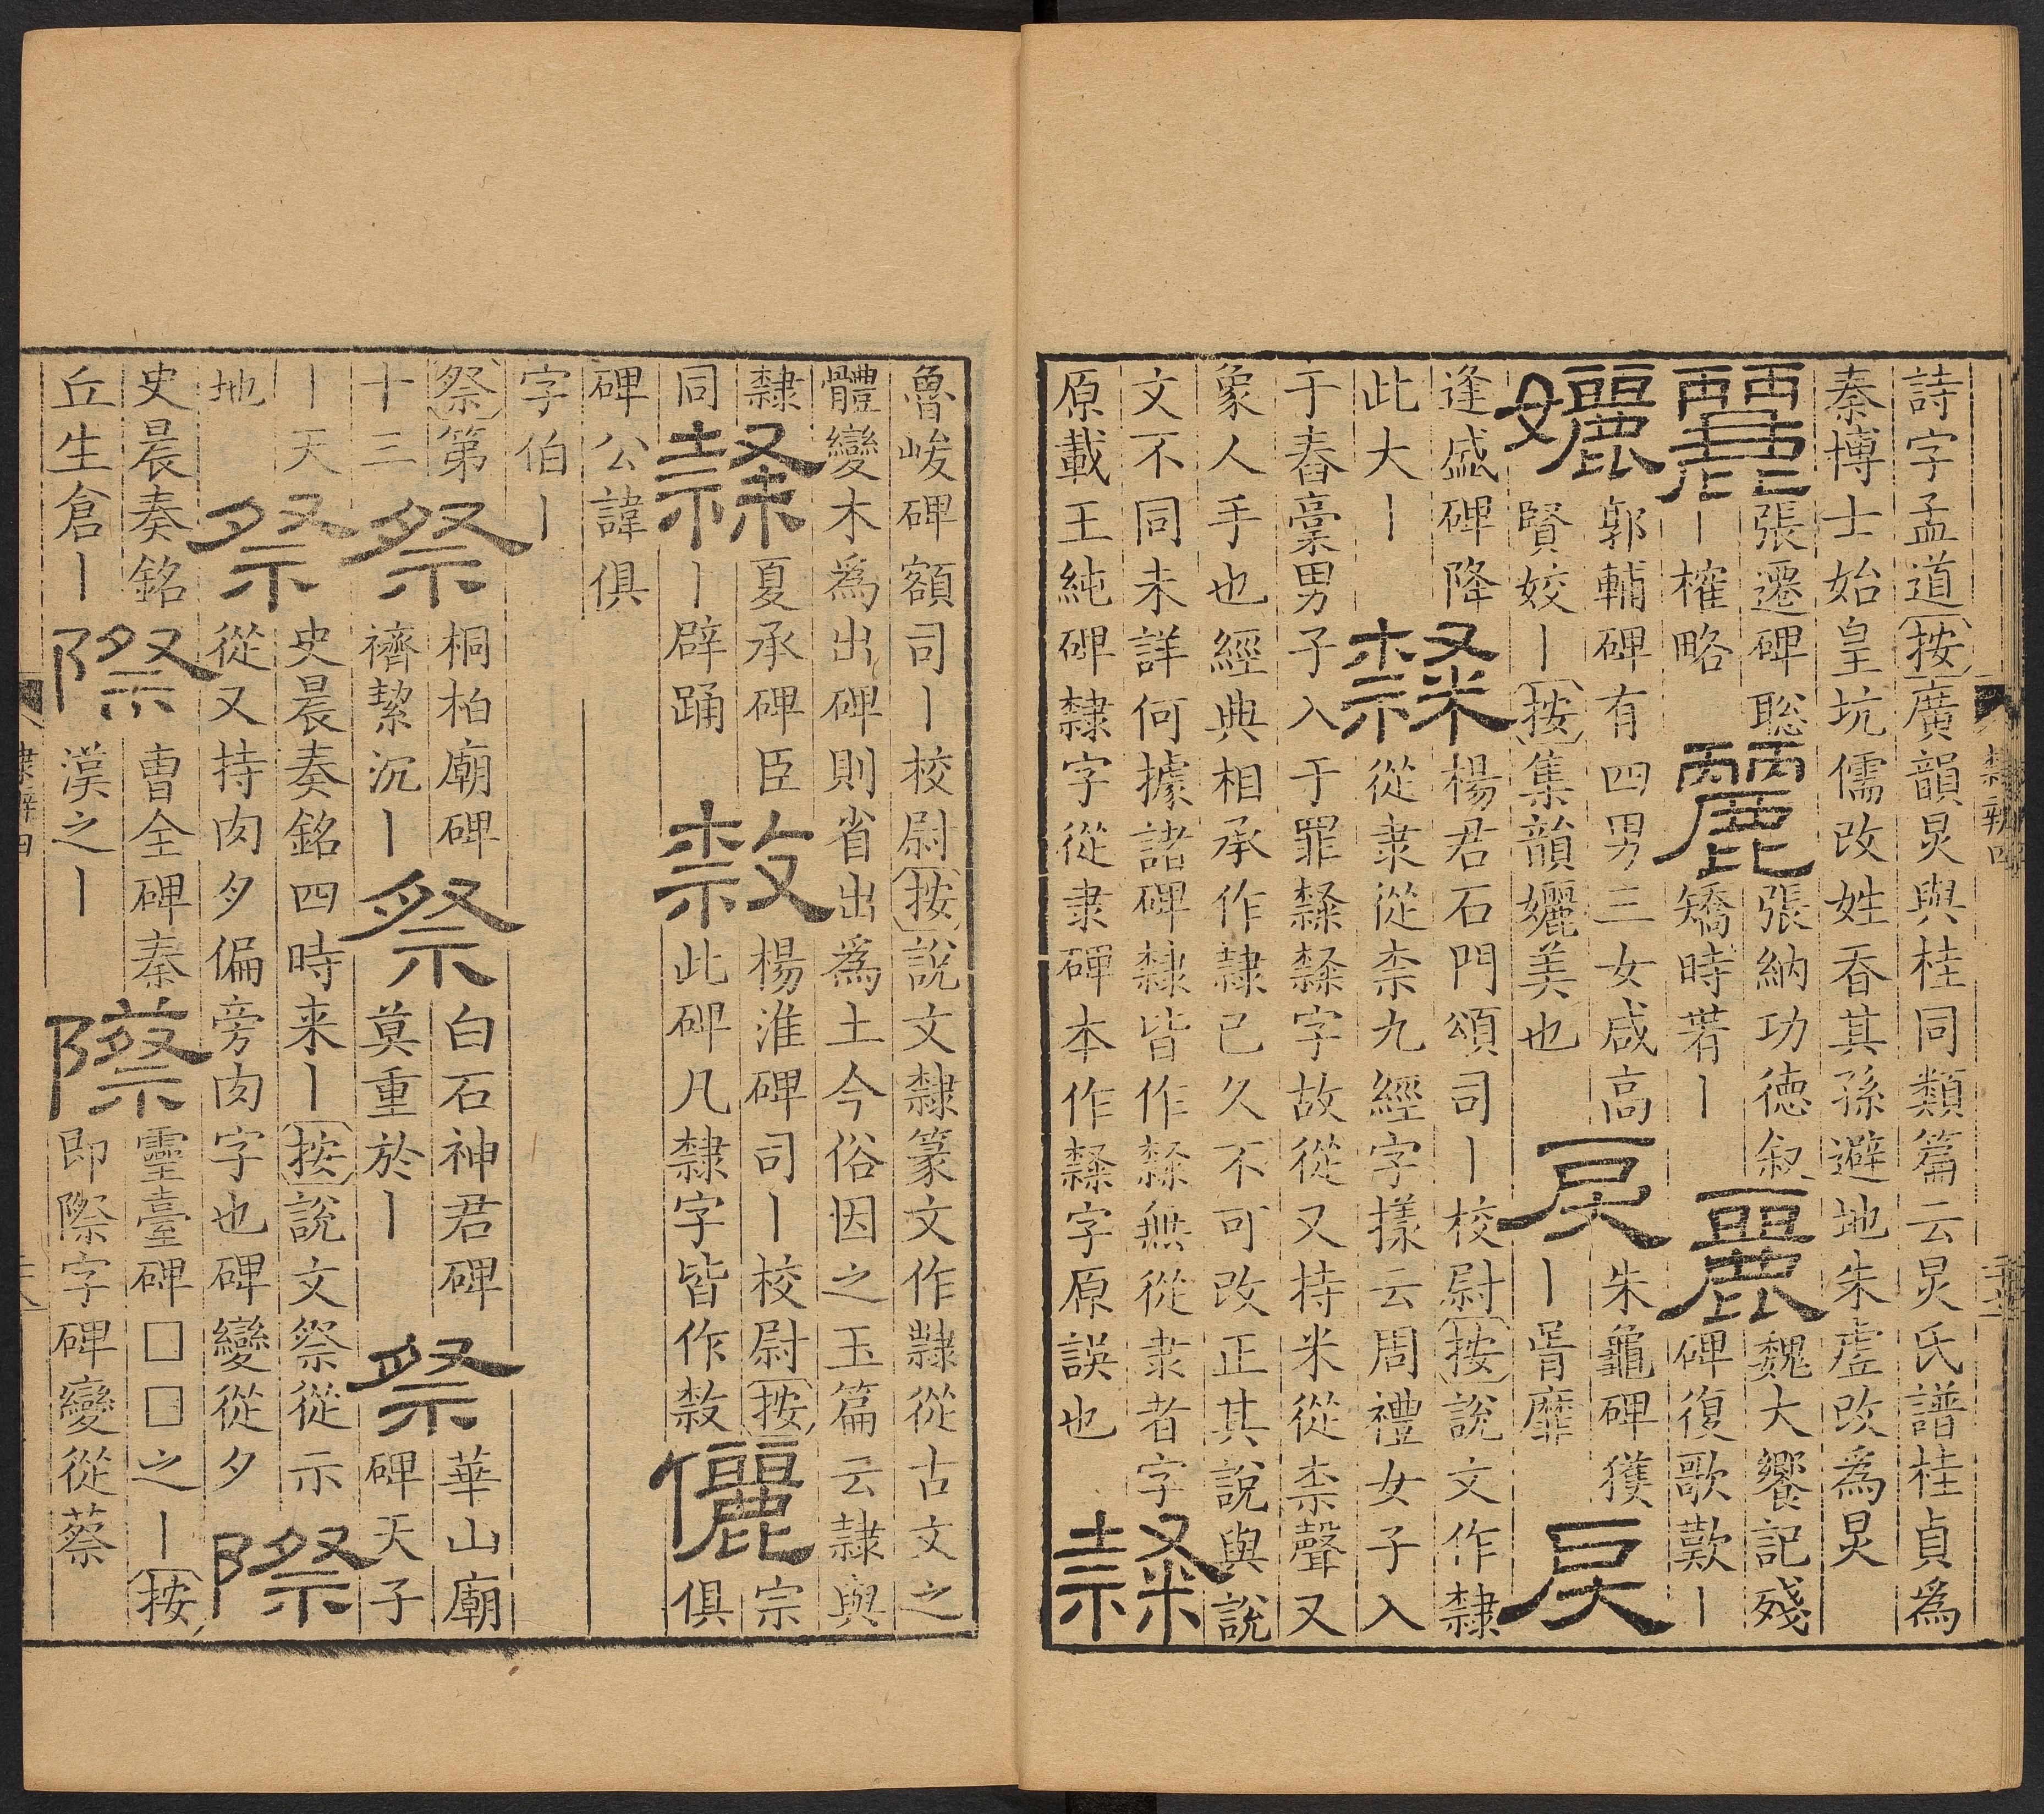 詩字孟道按廣韻炅與桂同類篇云炅氏譜桂貞為
秦博士始皇坑儒改姓香其孫避地朱虛改為炅
麗
張遷碑聡
丨榷略
麗
張納功德叙
矯時若丨
麗
魏大饗記殘
碑復歌歎丨
孋
郭輔碑有四男三女咸高
賢姣丨按集韻孋美也
戾
朱龜碑獲
丨胥靡
戾
逢盛碑降
此大丨
隸
楊君石門頌司丨校尉按說文作隸
從隶從柰九經字㨾云周禮女子入
于舂槀男子入于罪隸隸字故從又持米從柰聲又
象人手也經典相承作隸已久不可改正其說與說
文不同未詳何據諸碑隸皆作隸無從隶者字
原載王純碑隸字從隶碑本作隸字原誤也
隸
隸辨四
魯峻碑額司丨校尉按說文隸篆文作隸從古文之
體變木為出碑則省出為土今俗因之玉篇云隸與
隸
同
隸
夏承碑臣
丨辟踊
敖
楊淮碑司丨校尉按
此碑凡隸字皆作敖
儷
宗
俱
碑公諱俱
字伯丨
祭第
十三
祭
桐柏廟碑
襘絜沉丨
祭
白石神君碑
奠重於丨
祭
華山廟
碑天子
丨天
地
祭
史晨奏銘四時来丨按說文祭從示
從又持肉夕偏旁肉字也碑變從夕
際
史晨奏銘
丘生倉丨
際
曹全碑秦
漢之丨
際
靈臺碑□□之丨按
即際字碑變從蔡